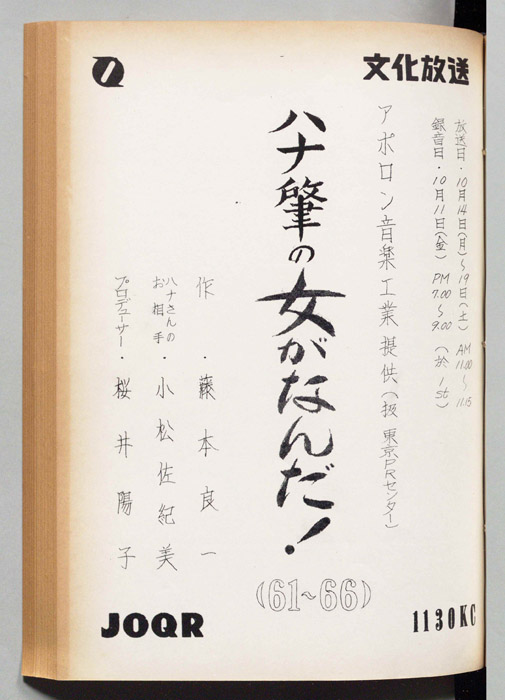 文化放送
放送日・10月14日(月)〜19日(土) AM 11.00〜11.15
録音日・10月11日(金) PM 7.00〜9.00 (於 1st)
アポロン音楽工業提供(扱 東京PRセンター)
ハナ肇の女がなんだ!
(61~66)
作・藤本良一
ハナさんのお相手・小松佐紀美
プロデューサー・桜井陽子
JOQR
1130KC